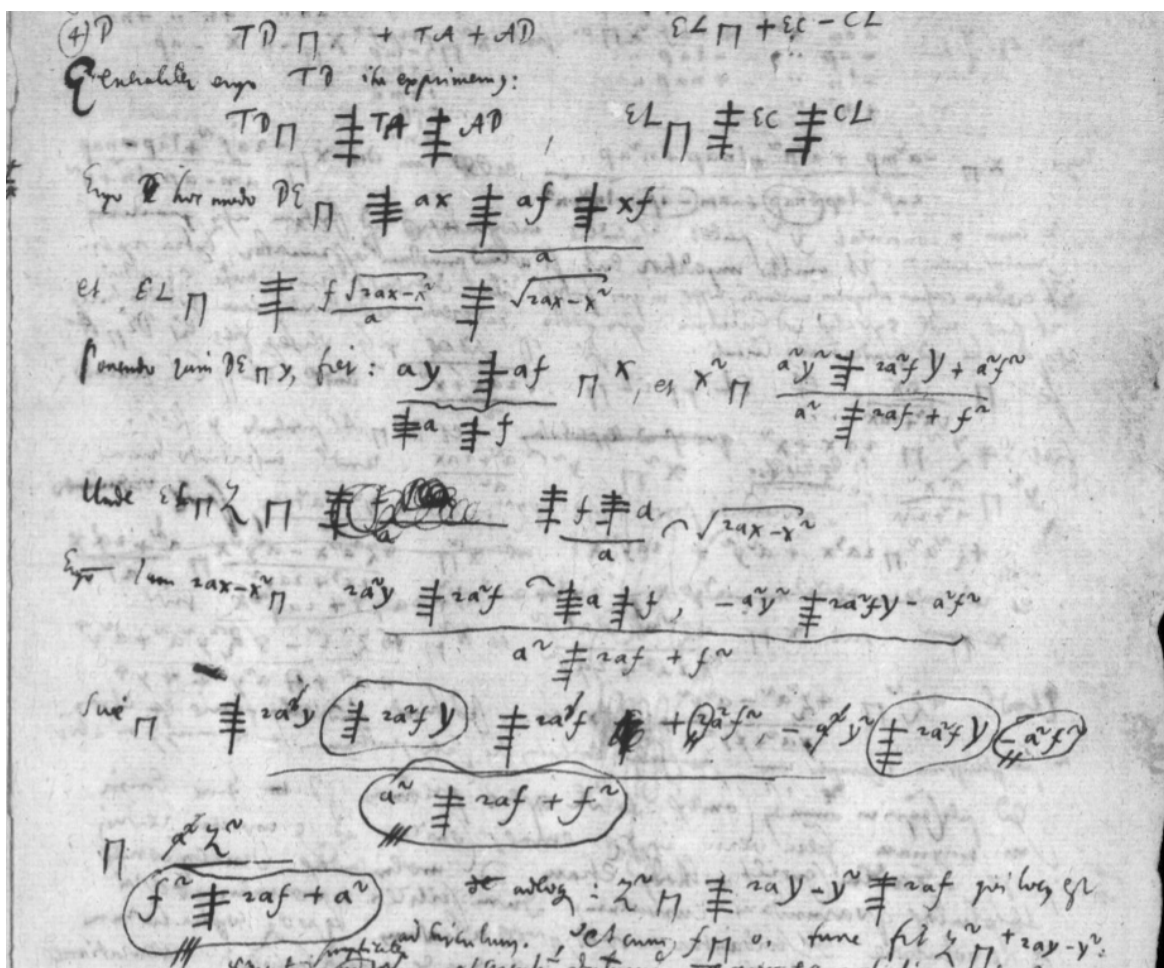 (4) D TD ⊓ + TA + AD EL ⊓ + EC − CL
Generaliter ergo TD ita exprimemus:
TD ⊓ ⧧ TA ⧧ AD , EL ⊓ ⧧ EC ⧧ CL
Ergo hoc modo DE ⊓ ⧧ ax ⧧ af ⧧ xf
a
et EL ⊓ ⧧ f √2ax−x² ⧧ √2ax−x²
a
Ponendo jam DE ⊓ y, fiet : ay ⧧ af ⊓ x, et x² ⊓ a²y² ⧧ 2a²fy + a²f²
⧧ a ⧧ f a² ⧧ 2af + f²
Unde EL ⊓ Z ⊓ ⧧ f ⧧ a ⌢ √2ax−x²
a a
Ergo Jam 2ax−x² ⊓ 2a²y ⧧ 2a²f ⌢ ⧧ a ⧧ f, − a²y² ⧧ 2a²fy − a²f²
a² ⧧ 2af + f²
sive ⊓ ⧧ 2a³y ⧧ 2a²fy ⧧ 2a³f + 2a²f² − a²y² ⧧ 2a²fy − a²f²
a² ⧧ 2af + f²
⊓ a²Z²
f² ⧧ 2af + a²
: Z² ⊓ ⧧ 2ay − y² ⧧ 2af qui locus est
ad circulum. et cum f ⊓ 0. tunc fit Z² ⊓ + 2ay − y²: